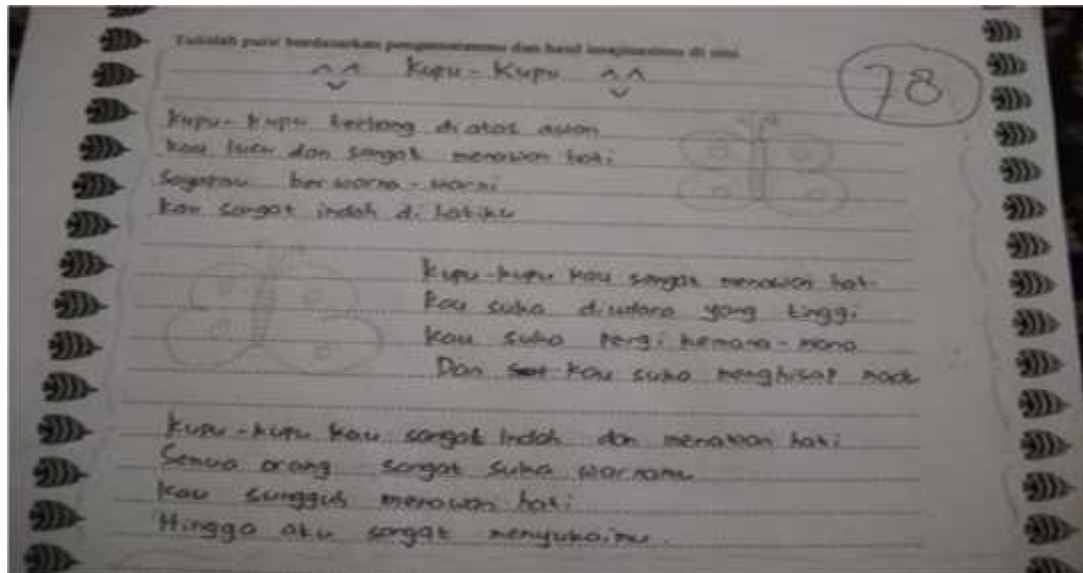 Tulislah puisi berdasarkan pengamatanmu dan hasil imajinasimu di sini.
Kupu - Kupu
78
Kupu - kupu terbang diatas awan
Kau lucu dan sangat menawan hati
Sayapmu berwarna - warni
Kau sangat indah di hatiku
Kupu-kupu kau sangat menawan hati
Kau suka diudara yang tinggi
Kau suka pergi kemana - mana
Dan kau suka menghisap madu
Kupu - kupu kau sangat indah dan menawan hati
Semua orang sangat suka warnamu
Kau sungguh menawan hati
Hingga aku sangat menyukaimu.